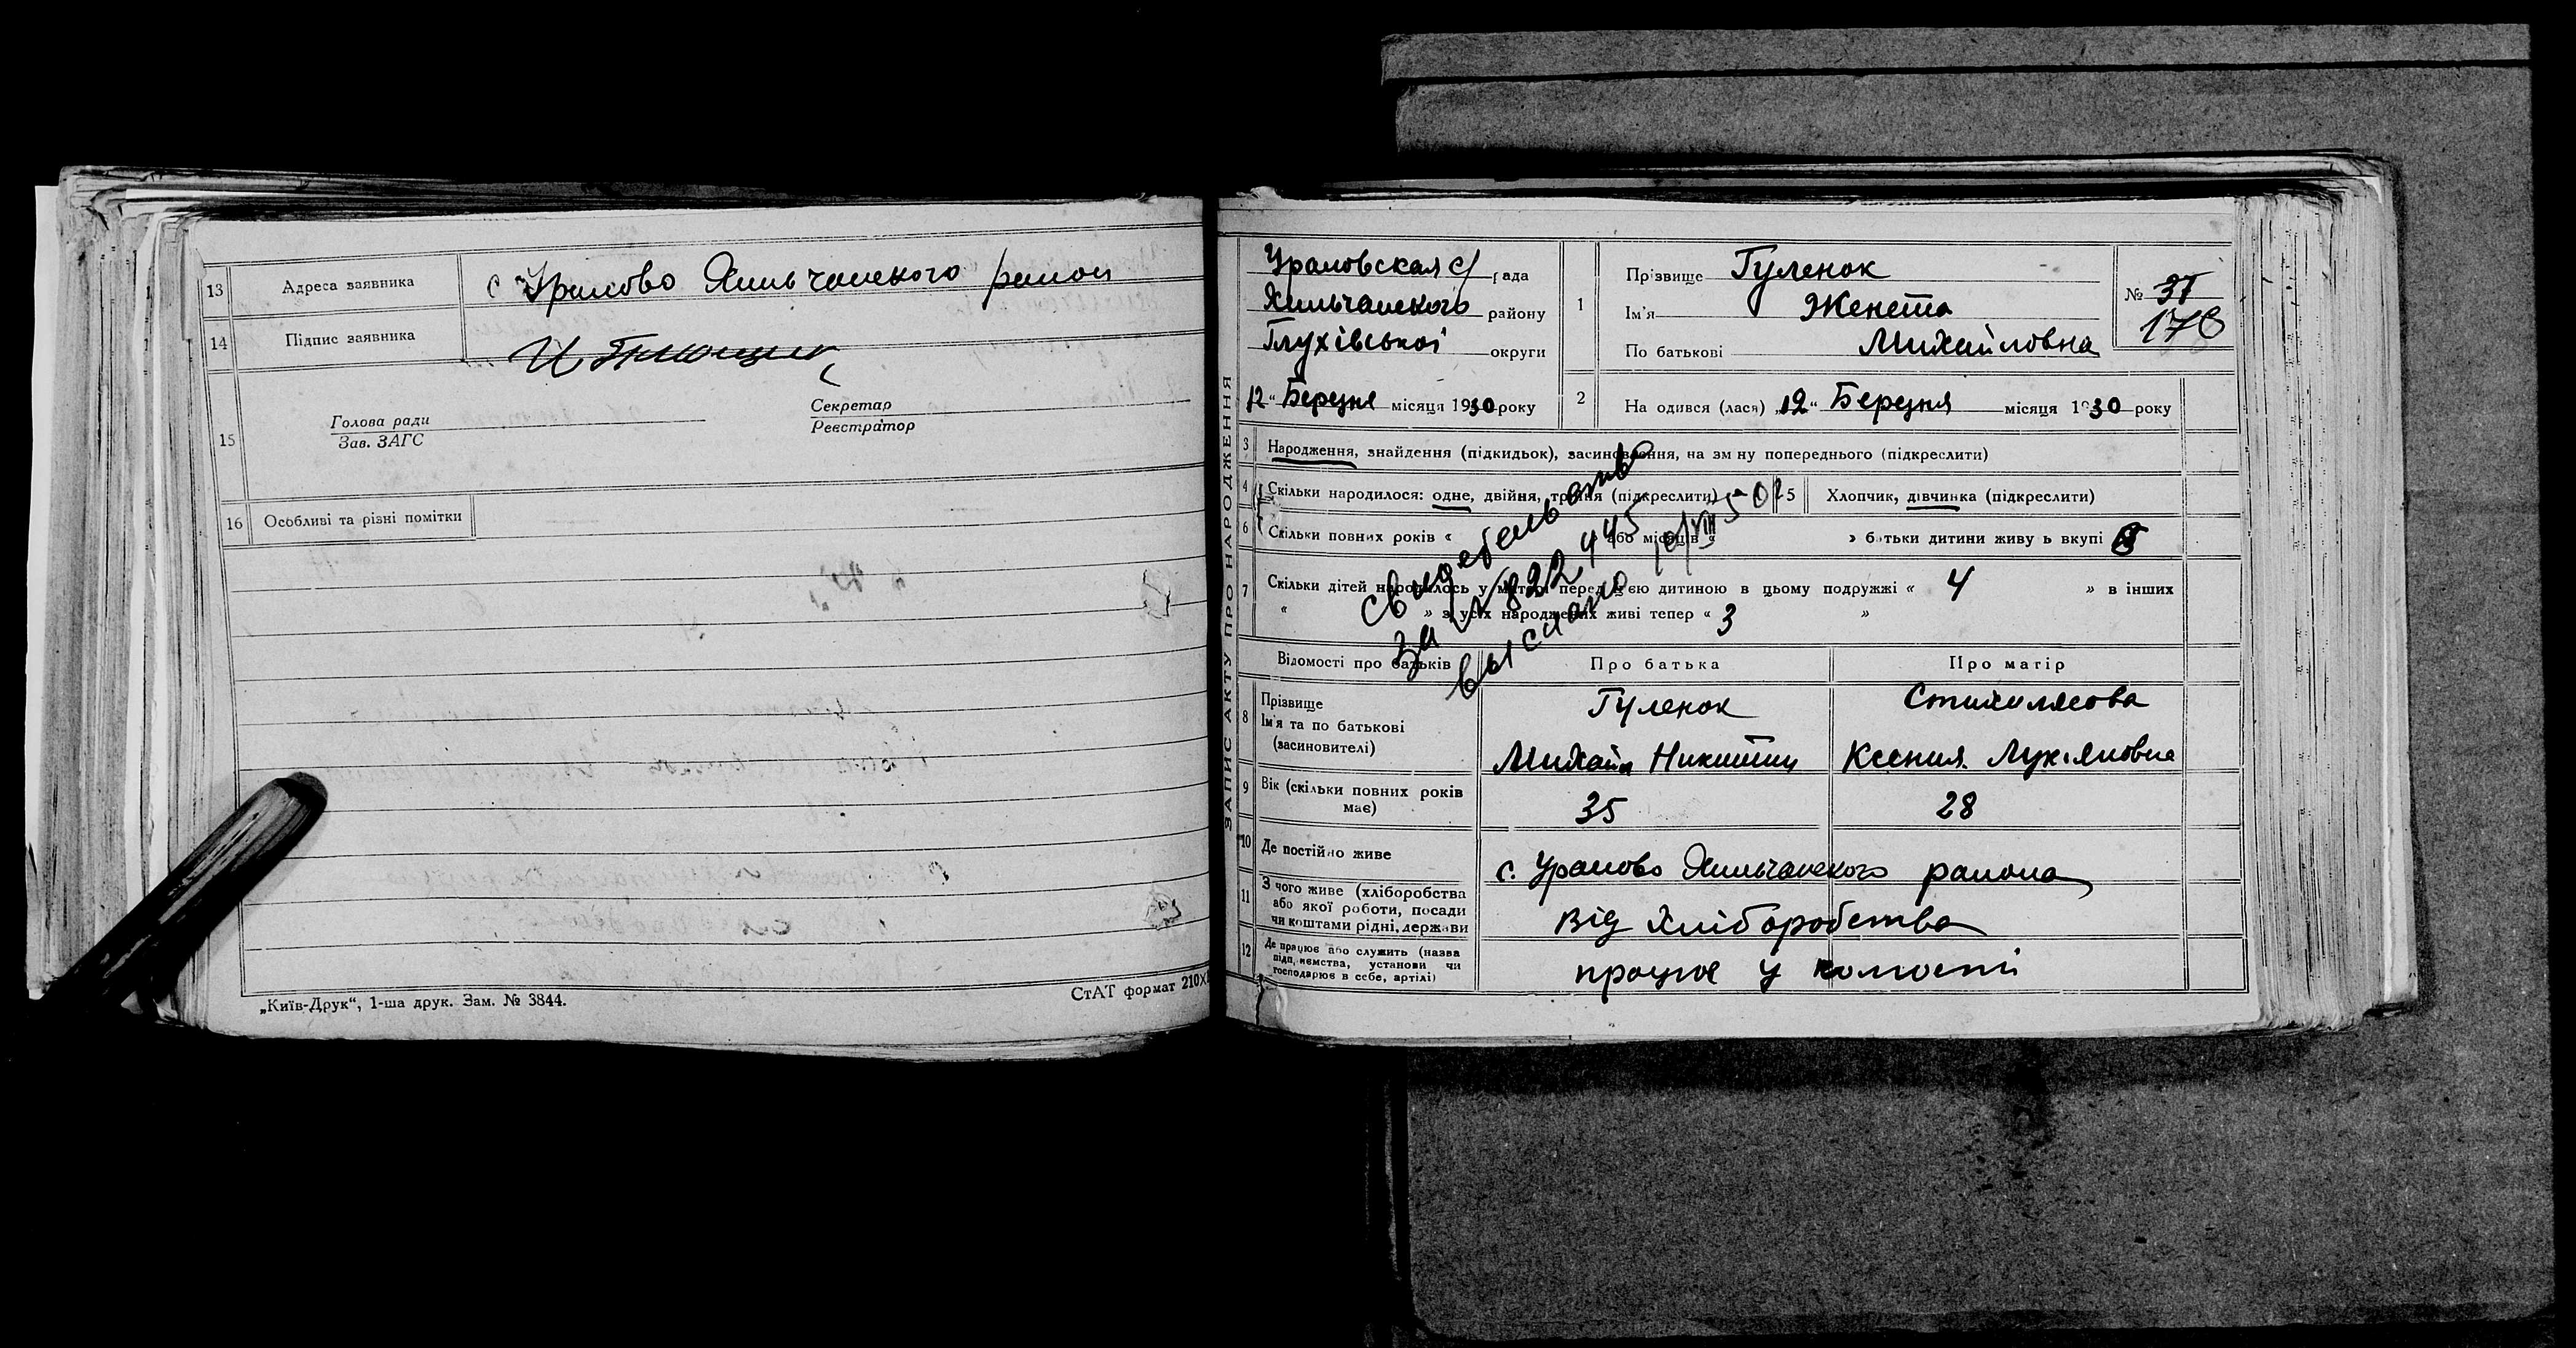 13 Адреса заявника с Уралово Хильчанского район
14 Підпис заявника
15 Голова ради
Зав. ЗАГС
Секретар
Реєстратор
16 Особливі та різні помітки
„Київ-Друк“, 1-ша друк. Зам. № 3844.
СтАТ формат 210X
ЗАПИС АКТУ ПРО НАРОДЖЕННЯ
Ураловская с/ рада
Хильчанского району
Глухівської округи
12 “ Березня місяця 1930 року
1 Прізвище Гуленок
Ім'я Женета
По батькові Михайловна
№ 37
178
2 На одився (лася) „12“ Березня місяця 1930 року
3 Народження, знайдення (підкидьок), засиновлення, на зм ну попереднього (підкреслити)
4 Скільки народилося: одне, двійня, трійня (підкреслити)
5 Хлопчик, дівчинка (підкреслити)
6 Скільки повних років « або місяців « » батьки дитини живу ь вкупі
7 Скільки дітей народилось у матері перед цією дитиною в цьому подружжі « 4 » в інших
« » з усіх народжених живі тепер « 3 »
Свидетельство
за № 822445
выслано 10/VIII 50 г
Відомості про батьків Про батька Про матір
8 Прізвище
Ім'я та по батькові
(засиновителі)
Гуленок
Михайл Никитич
Ксения Лукяновна
9 Вік (скільки повних років має) 35 28
10 Де постійно живе с. Уралово Хильчанского района
11 З чого живе (хліборобства
або якої роботи, посади
чи коштами рідні, держави
Від Хліборобства
12 Де працює або служить (назва
підп,иємства, установи чи
господарює в себе, артілі)
працює у